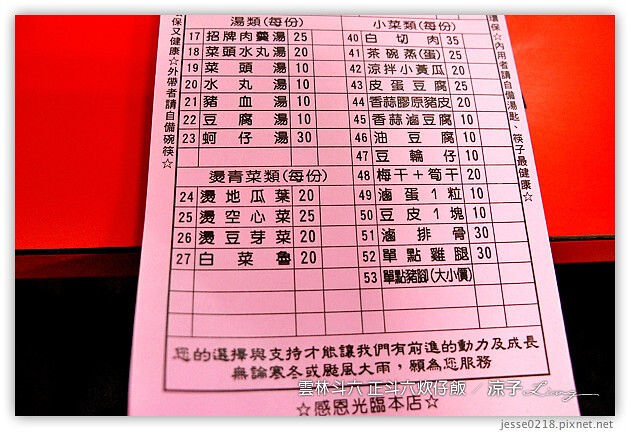 湯類(每份)
17 招牌肉羹湯 25
18 菜頭水丸湯 20
19 菜頭湯 10
20 水丸湯 10
21 豬血湯 10
22 豆腐湯 10
23 蚵仔湯 30
燙青菜類(每份)
24 燙地瓜葉 20
25 燙空心菜 25
26 燙豆芽菜 20
27 白菜魯 20
小菜類(每份)
40 白切肉 35
41 茶碗蒸(蛋) 25
42 涼拌小黃瓜 20
43 皮蛋豆腐 25
44 香蒜膠原豬皮 20
45 香蒜滷豆腐 10
46 油豆腐 10
47 豆輪仔 10
48 梅干+筍干 20
49 滷蛋1粒 10
50 豆皮1塊 10
51 滷排骨 30
52 單點雞腿 30
53 單點豬腳(大小價)
保又健康☆外帶者請自備碗筷☆
環保☆內用者請自備湯匙、筷子最健康☆
您的選擇與支持才能讓我們有前進的動力及成長
無論寒冬或颱風大雨,願為您服務
☆感恩光臨本店☆
雲林斗六 正斗六炊仔飯 / 涼子 Liang
jesse0218.pixnet.net